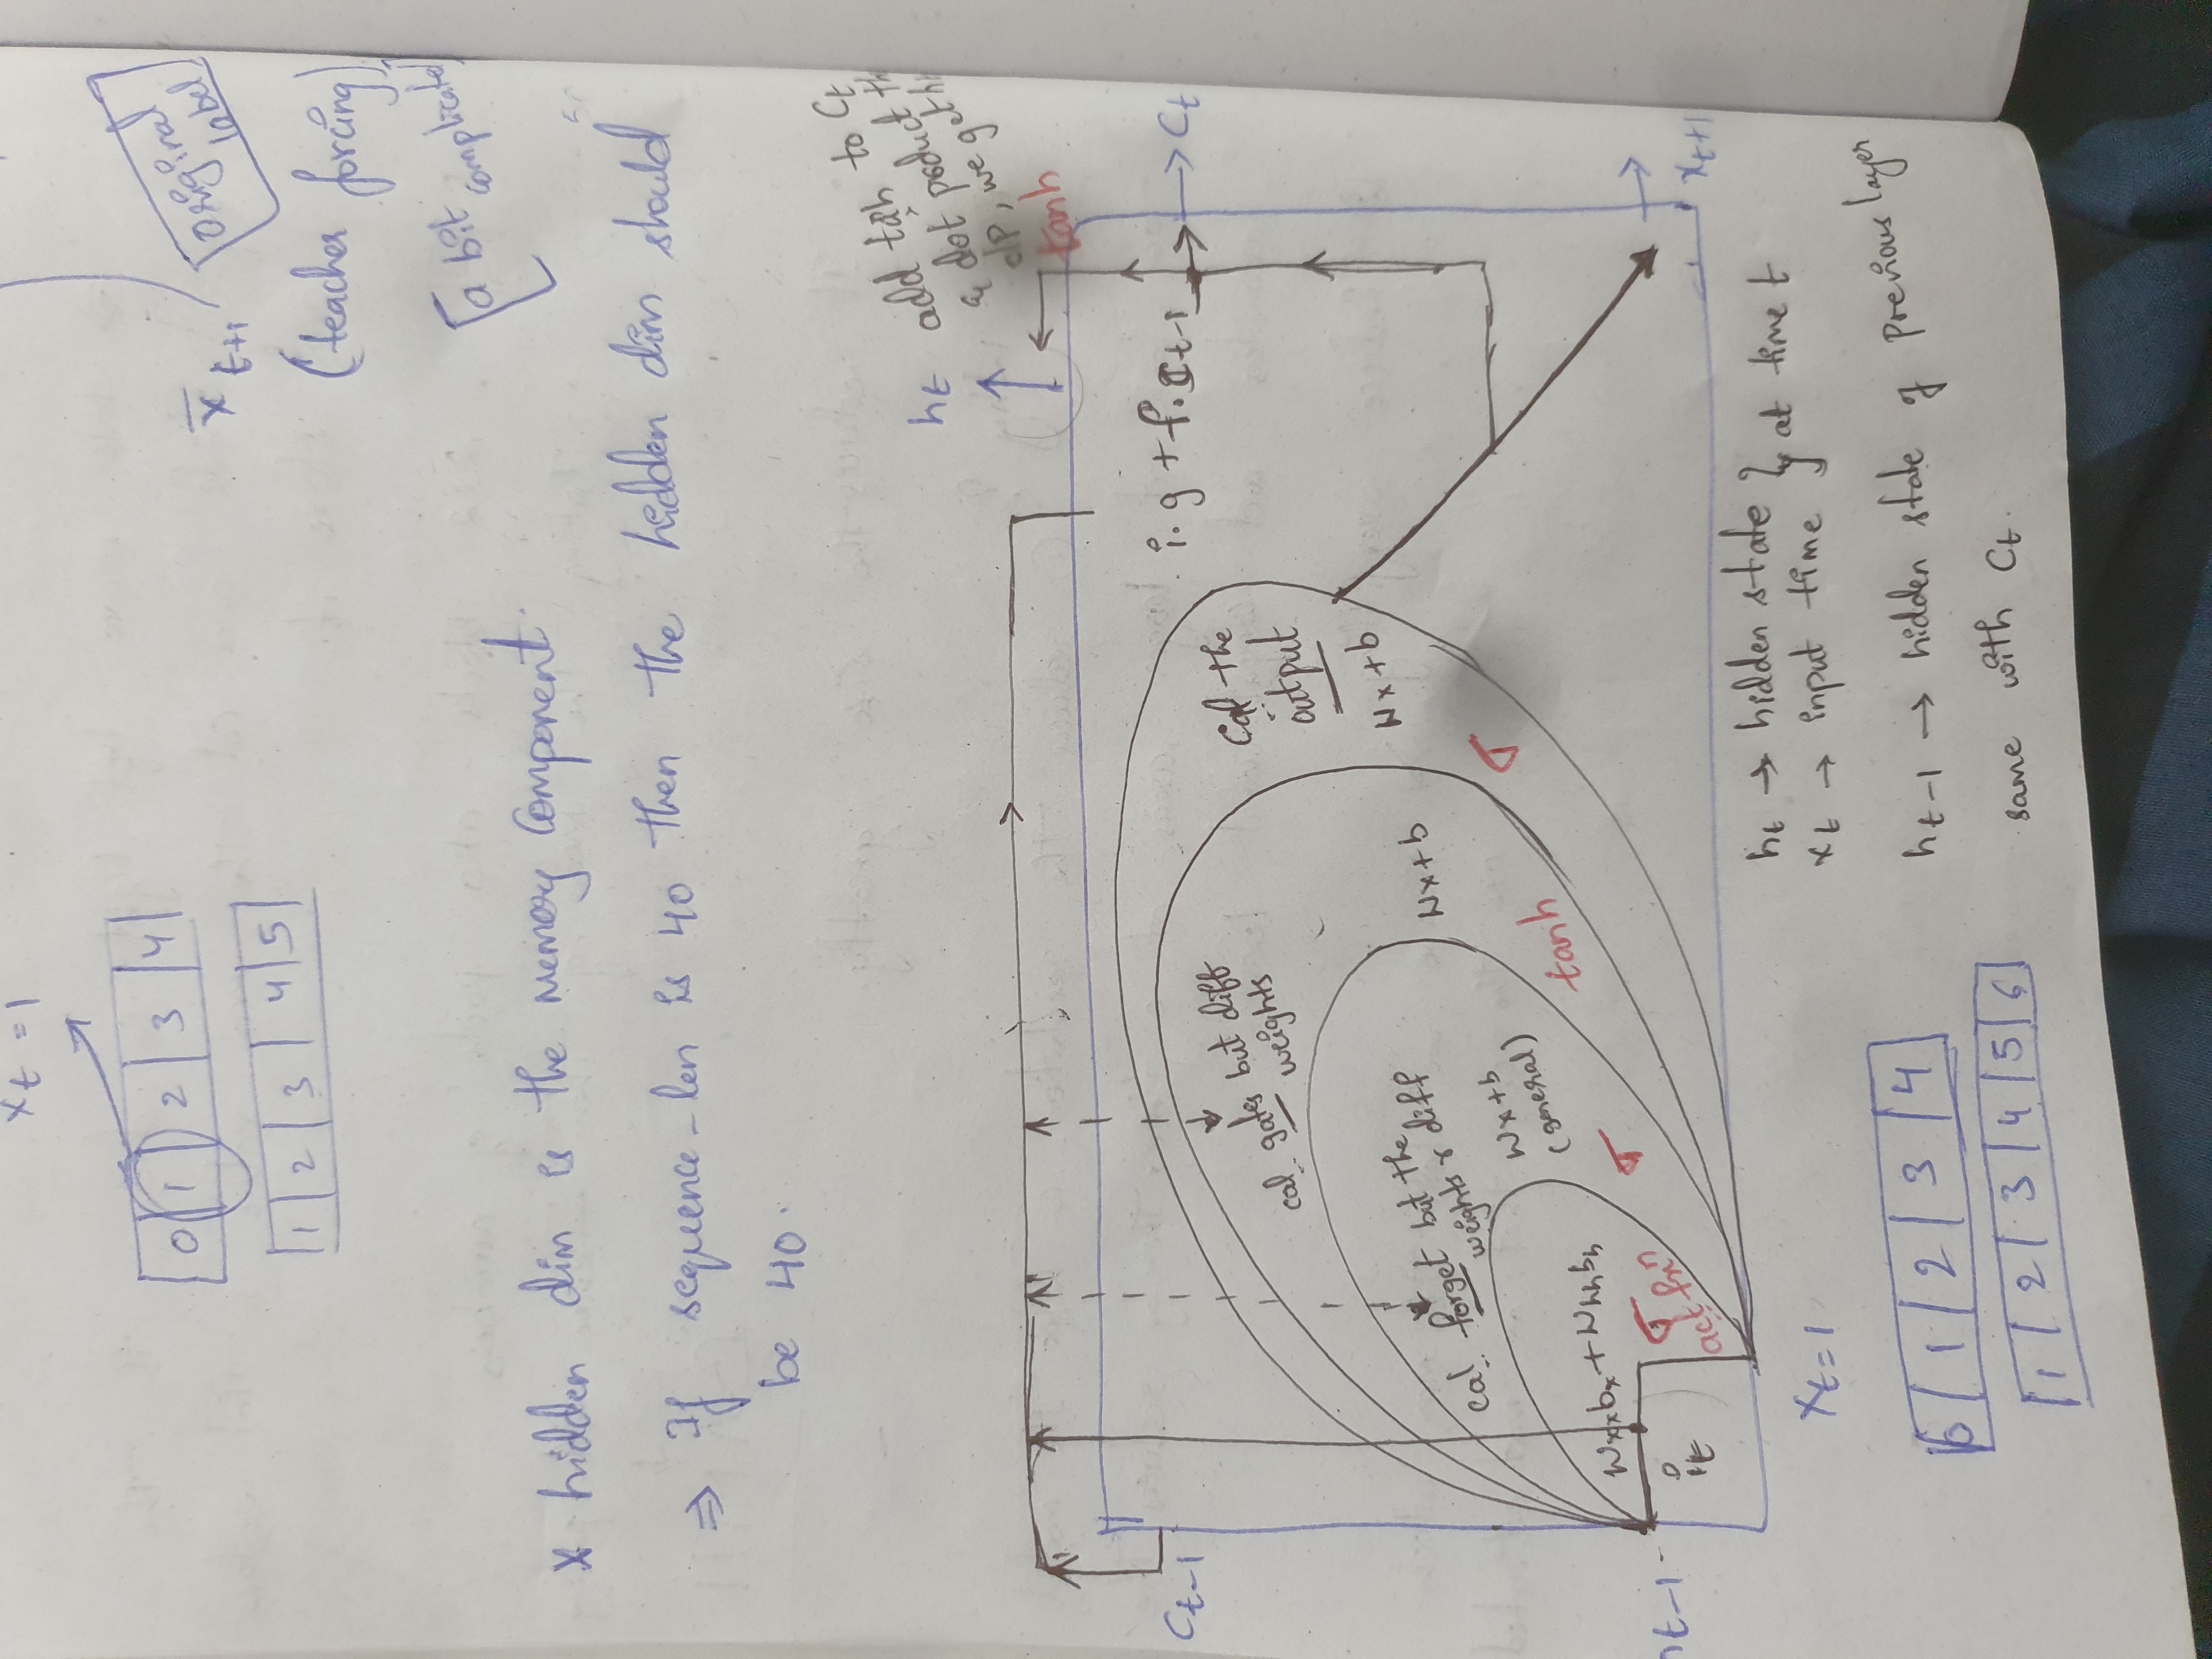 x_t = 1
0 1 2 3 4
1 2 3 4 5
x̄_{t+1}
original
label
(teacher forcing)
[a bit complicated]
* hidden dim is the memory component.
⇒ If sequence-len is 40 then the hidden dim should
be 40.
h_t
add tanh to C_t
& dot product
o/p, we get h_t
tanh
C_{t-1}
i.g + f.C_{t-1}
→ C_t
cal. gates but diff
weights
Cal the
output
Wx+b
cal. forget but the
weights r diff
Wx+b
Wx+b
(general)
σ
tanh
W_{xx}b_x + W_{hh}b_h
σ
σ
act fxⁿ
h_{t-1}
i_t
x_{t+1}
x_t = 1
h_t → hidden state } at time t
x_t → input time
0 1 2 3 4
h_{t-1} → hidden state of previous layer
1 2 3 4 5 6
same with C_t.